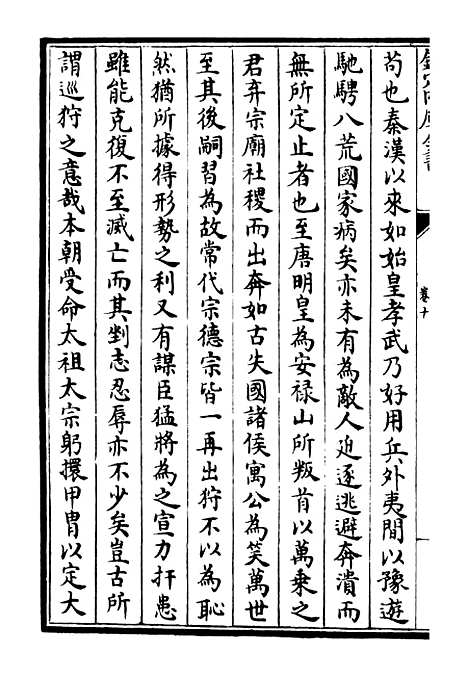 欽定四庫全書
卷十
苟也秦漢以來如始皇孝武乃好用兵外夷間以豫遊
馳騁八荒國家病矣亦未有為敵人迫逐逃避奔潰而
無所定止者也至唐明皇為安禄山所叛首以萬乘之
君弃宗廟社稷而出奔如古失國諸侯寓公為笑萬世
至其後嗣習為故常代宗德宗皆一再出狩不以為恥
然猶所據得形勢之利又有謀臣猛將為之宣力扞患
雖能克復不至滅亡而其剉志忍辱亦不少矣豈古所
謂巡狩之意哉本朝受命太祖太宗躬擐甲胄以定大